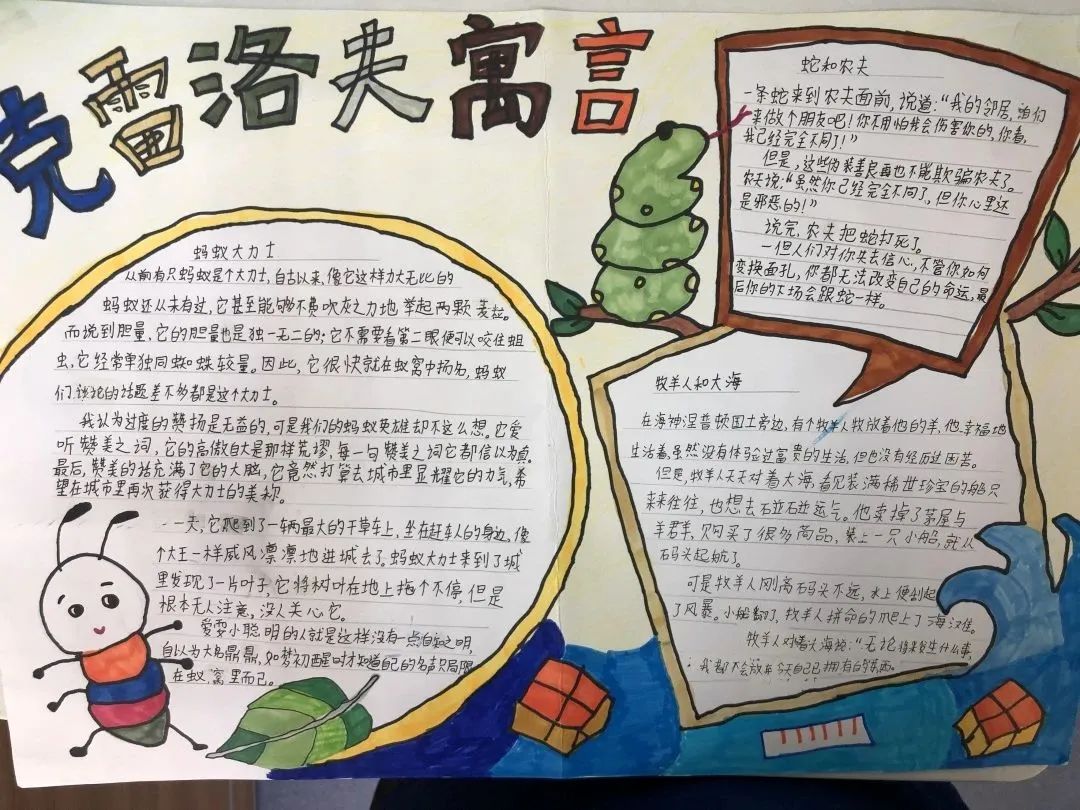 克雷洛夫寓言
蚂蚁大力士
从前有只蚂蚁是个大力士,自古以来,像它这样力大无比的
蚂蚁还从未有过,它甚至能够不费吹灰之力地举起两颗麦粒。
而说到胆量,它的胆量也是独一无二的;它不需要看第二眼便可以咬住蛆
虫,它经常单独同蜘蛛较量。因此,它很快就在蚁窝中扬名,蚂蚁
们谈论的话题差不多都是这个大力士。
我认为过度的赞扬是无益的,可是我们的蚂蚁英雄却不这么想。它爱
听赞美之词,它的高傲自大是那样荒谬,每一句赞美之词它都信以为真。
最后,赞美的话充满了它的大脑,它竟然打算去城市里显耀它的力气,希
望在城市里再次获得大力士的美称。
一天,它爬到了一辆最大的干草车上,坐在赶车人的身边,像
个大王一样威风凛凛地进城去了。蚂蚁大力士来到了城
里发现了一片叶子,它将树叶在地上拖个不停,但是
根本无人注意,没人关心它。
爱耍小聪明的人就是这样没有一点自知之明,
自以为大名鼎鼎,如梦初醒时才知道自己的名声只局限
在蚁窝里而已。
蛇和农夫
一条蛇来到农夫面前,说道:“我的邻居,咱们
来做个朋友吧!你不用怕我会伤害你的,你看,
我已经完全不同了!”
但是,这些伪装善良再也不能欺骗农夫了。
农夫说:“虽然你已经完全不同了,但你心里还
是邪恶的!”
说完,农夫把蛇打死了。
一但人们对你失去信心,不管你如何
变换面孔,你都无法改变自己的命运,最
后你的下场会跟蛇一样。
牧羊人和大海
在海神涅普顿国土旁边,有个牧羊人牧放着他的羊,他幸福地
生活着,虽然没有体验过富贵的生活,但也没有经历过困苦。
但是,牧羊人天天对着大海,看见装满稀世珍宝的船只
来来往往,也想去碰碰运气。他卖掉了茅屋与
羊群,购买了很多商品,装上一只小船,就从
码头起航了。
可是牧羊人刚离码头不远,水上便刮起
了风暴。小船翻了,牧羊人拼命的爬上了海滩。
牧羊人对着大海说:“无论将来发生什么事,
我都不会放弃自己已拥有的东西。